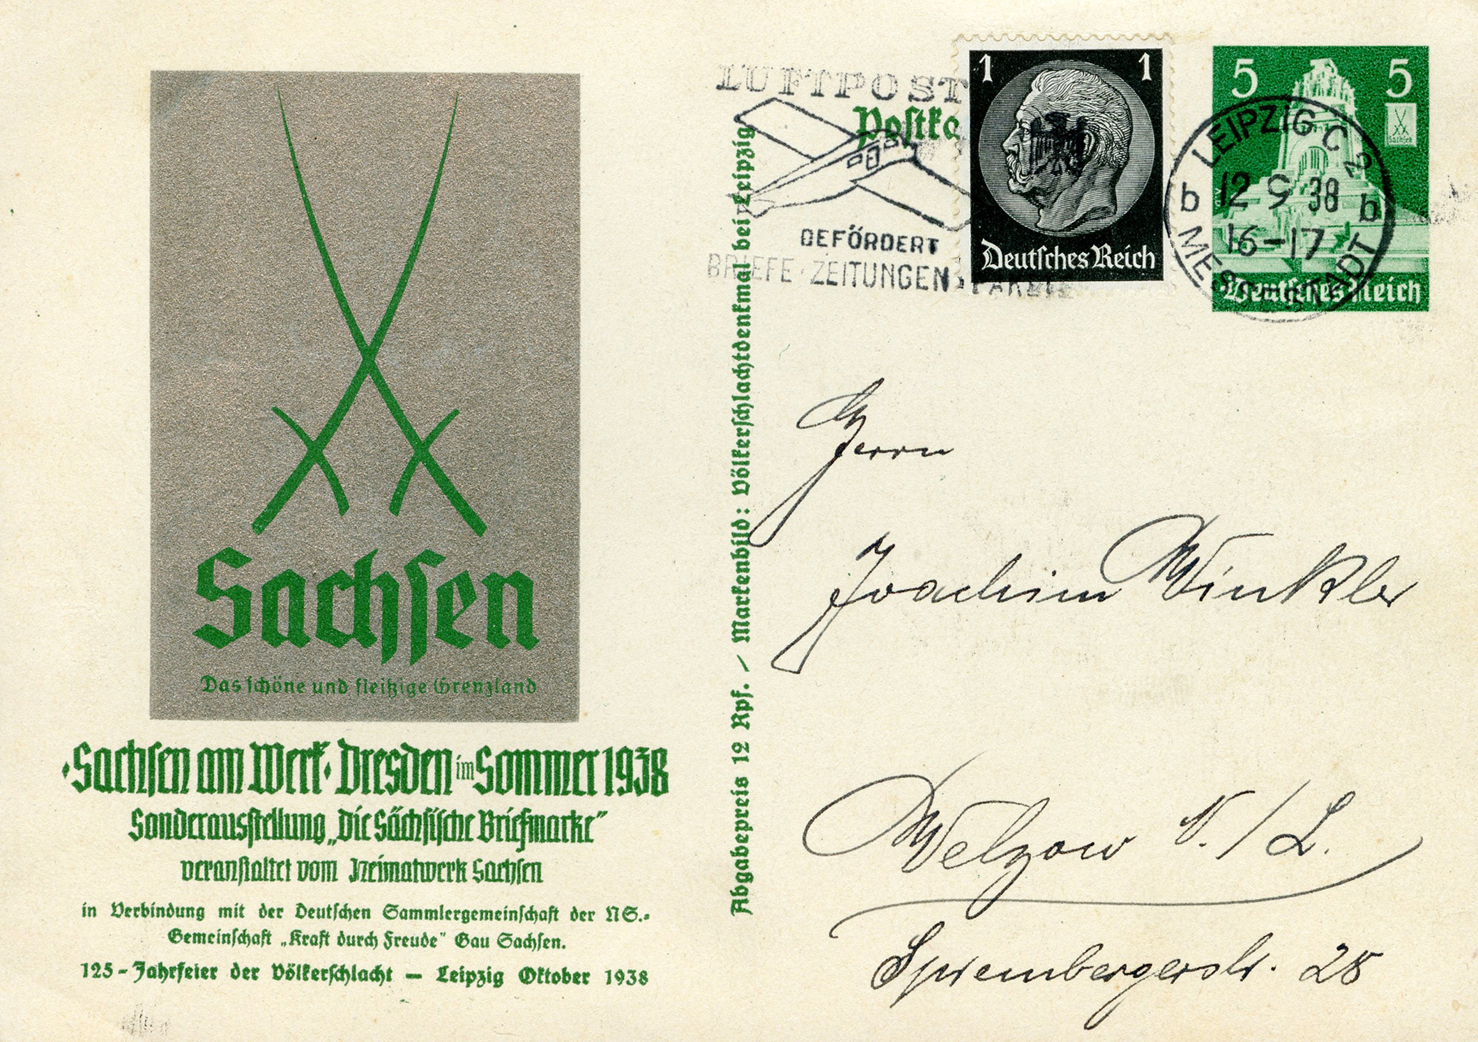 Sachsen
Das schöne und fleißige Grenzland
·Sachsen am Werk· Dresden im Sommer 1938
Sonderausstellung „Die Sächsische Briefmarke“
veranstaltet vom Heimatwerk Sachsen
in Verbindung mit der Deutschen Sammlergemeinschaft der NS.-
Gemeinschaft „Kraft durch Freude“ Gau Sachsen.
125-Jahrfeier der Völkerschlacht — Leipzig Oktober 1938
Abgabepreis 12 Rpf. / Markenbild: Völkerschlachtdenkmal bei Leipzig
LUFTPOST
BEFÖRDERT
BRIEFE·ZEITUNGEN·PAKETE
Postka
1 1
Deutsches Reich
5 5
Sachsen
Deutsches Reich
LEIPZIG C 2
b 12 9 38 b
16-17
MESSESTADT
Herrn
Joachim Winkler
Welzow N./L.
Sprembergerstr. 28